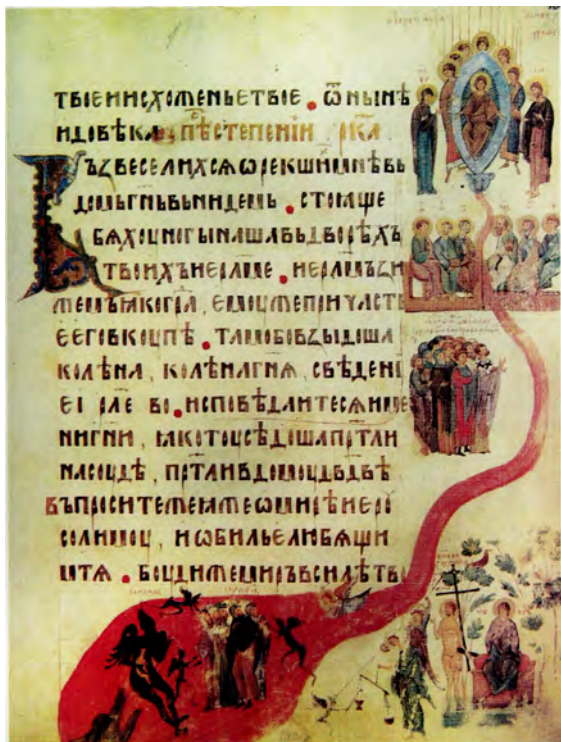 твоеиисхоженьетвое . ѿнынѣ
идовѣка . пѣⷭ҇степении рк҃а
Въꙁвеселихсѧѡрекшиимнѣвъ
домъгн҃ьвънидемъ . стоꙗще
бѧхоуногынашавъдворѣхъ
твоихъиер҃лме . иер҃лмъꙁи
жемъꙗкогра҃ , емоужепричасть
ееговкоупѣ . тамобовꙁыдоша
колѣна , колѣнагн҃ѧ , свѣдѣни
во . исповѣдаитесѧиме
нигн҃и , ꙗкотоусѣдошапрⷭ҇тли
насоудѣ , прⷭ҇тливдомоудв҃двѣ
въпроситежеꙗжеѡмирѣиеро
солимоу , иѡбильелюбѧщи
мътѧ . боудижемиръвсилѣтво